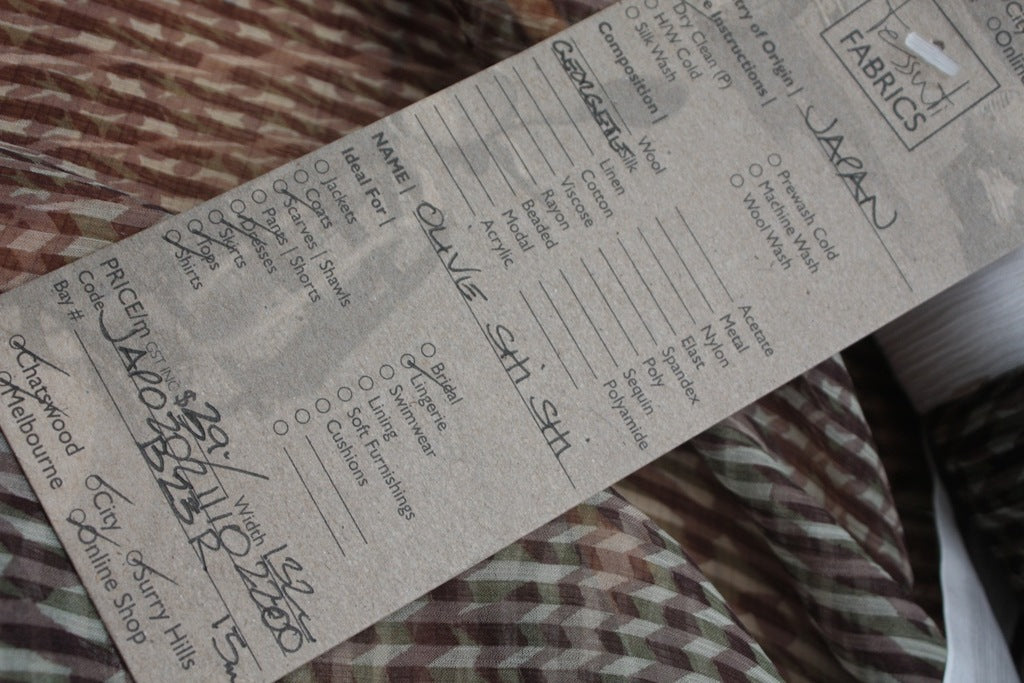 Tessuti
FABRICS
City
Online
try of Origin | JAPAN
e Instructions |
Dry Clean (P)
H/W Cold
Silk Wash
Prewash Cold
Machine Wash
Wool Wash
Composition |
Wool
GEORGETTE Silk
Linen
Cotton
Viscose
Rayon
Beaded
Modal
Acrylic
Acetate
Metal
Nylon
Elast
Spandex
Poly
Sequin
Polyamide
NAME | OLIVIE STI STI
Ideal For |
Jackets
Coats
Scarves | Shawls
Pants | Shorts
Dresses
Skirts
Tops
Shirts
Bridal
Lingerie
Swimwear
Lining
Soft Furnishings
Cushions
PRICE/m GST INC $39.- Width 135
Code
Bay #
15m
Chatswood
City
Surry Hills
Melbourne
Online Shop